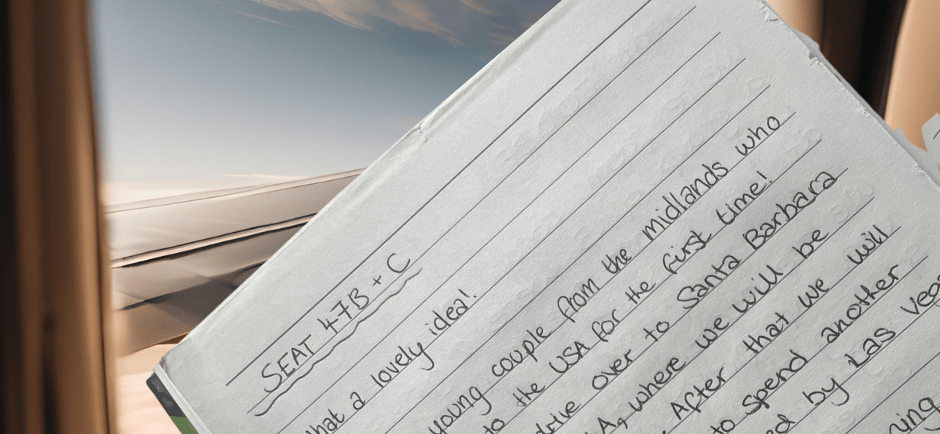 SEAT 47B + C
hat a lovely idea!
young couple from the midlands who
to the USA for the first time!
drive over to Santa Barbara
A, where we will be
After that we will
to spend another
ed by Las Veg
ing